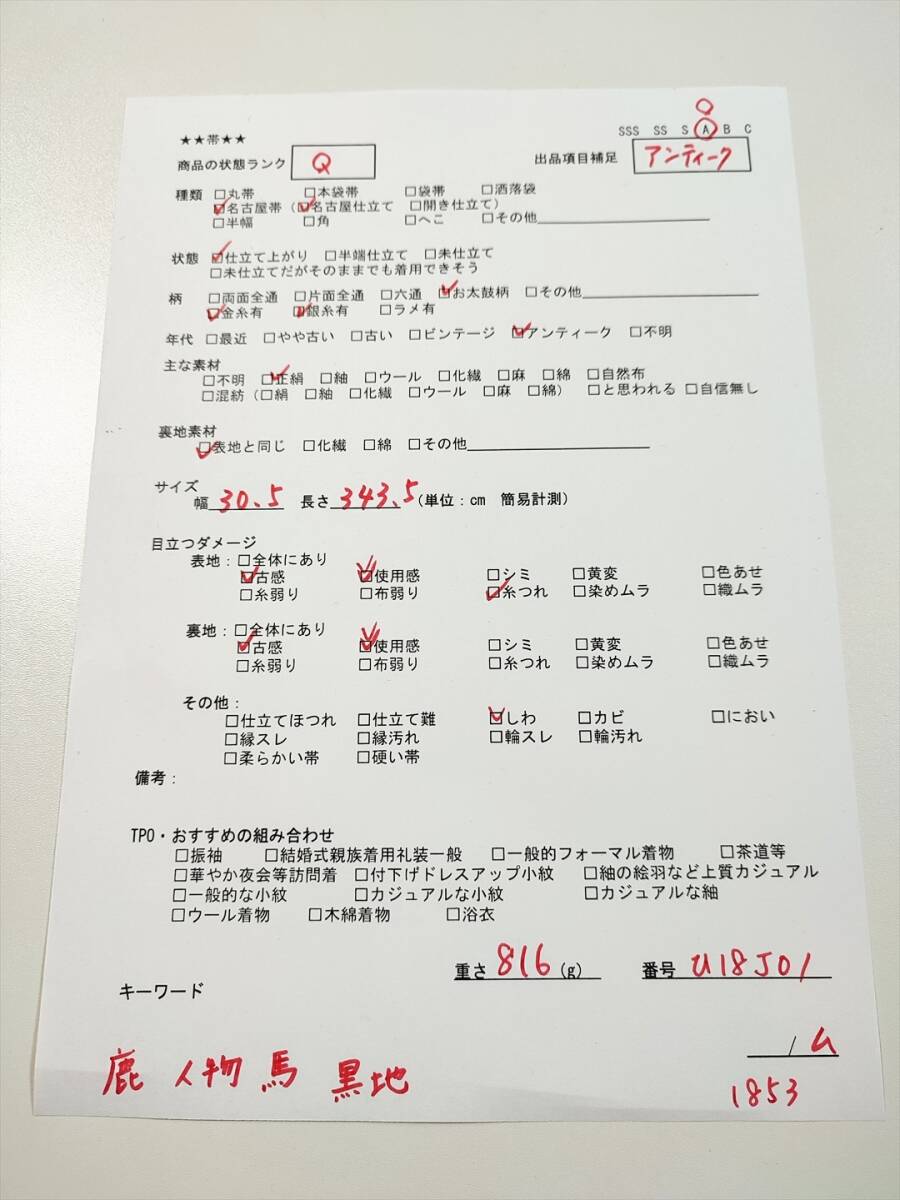 ★★帯★★
SSS SS S A B C
商品の状態ランク Q 出品項目補足 アンティーク
種類 □丸帯 □本袋帯 □袋帯 □洒落袋
☑名古屋帯(☑名古屋仕立て □開き仕立て)
□半幅 □角 □へこ □その他
状態 ☑仕立て上がり □半端仕立て □未仕立て
□未仕立てだがそのままでも着用できそう
柄 □両面全通 □片面全通 □六通 ☑お太鼓柄 □その他
☑金糸有 ☑銀糸有 □ラメ有
年代 □最近 □やや古い □古い □ビンテージ ☑アンティーク □不明
主な素材
□不明 ☑正絹 □紬 □ウール □化繊 □麻 □綿 □自然布
□混紡(□絹 □紬 □化繊 □ウール □麻 □綿) □と思われる □自信無し
裏地素材
☑表地と同じ □化繊 □綿 □その他
サイズ
幅 30.5 長さ 343.5 (単位:cm 簡易計測)
目立つダメージ
表地:□全体にあり
☑古感 ☑使用感 □シミ □黄変 □色あせ
□糸弱り □布弱り ☑糸つれ □染めムラ □織ムラ
裏地:□全体にあり
☑古感 ☑使用感 □シミ □黄変 □色あせ
□糸弱り □布弱り □糸つれ □染めムラ □織ムラ
その他:
□仕立てほつれ □仕立て難 ☑しわ □カビ □におい
□縁スレ □縁汚れ □輪スレ □輪汚れ
□柔らかい帯 □硬い帯
備考:
TPO・おすすめの組み合わせ
□振袖 □結婚式親族着用礼装一般 □一般的フォーマル着物 □茶道等
□華やか夜会等訪問着 □付下げドレスアップ小紋 □紬の絵羽など上質カジュアル
□一般的な小紋 □カジュアルな小紋 □カジュアルな紬
□ウール着物 □木綿着物 □浴衣
重さ 816 (g) 番号 U18J01
キーワード
鹿 人物 馬 黒地
/ ム
1853